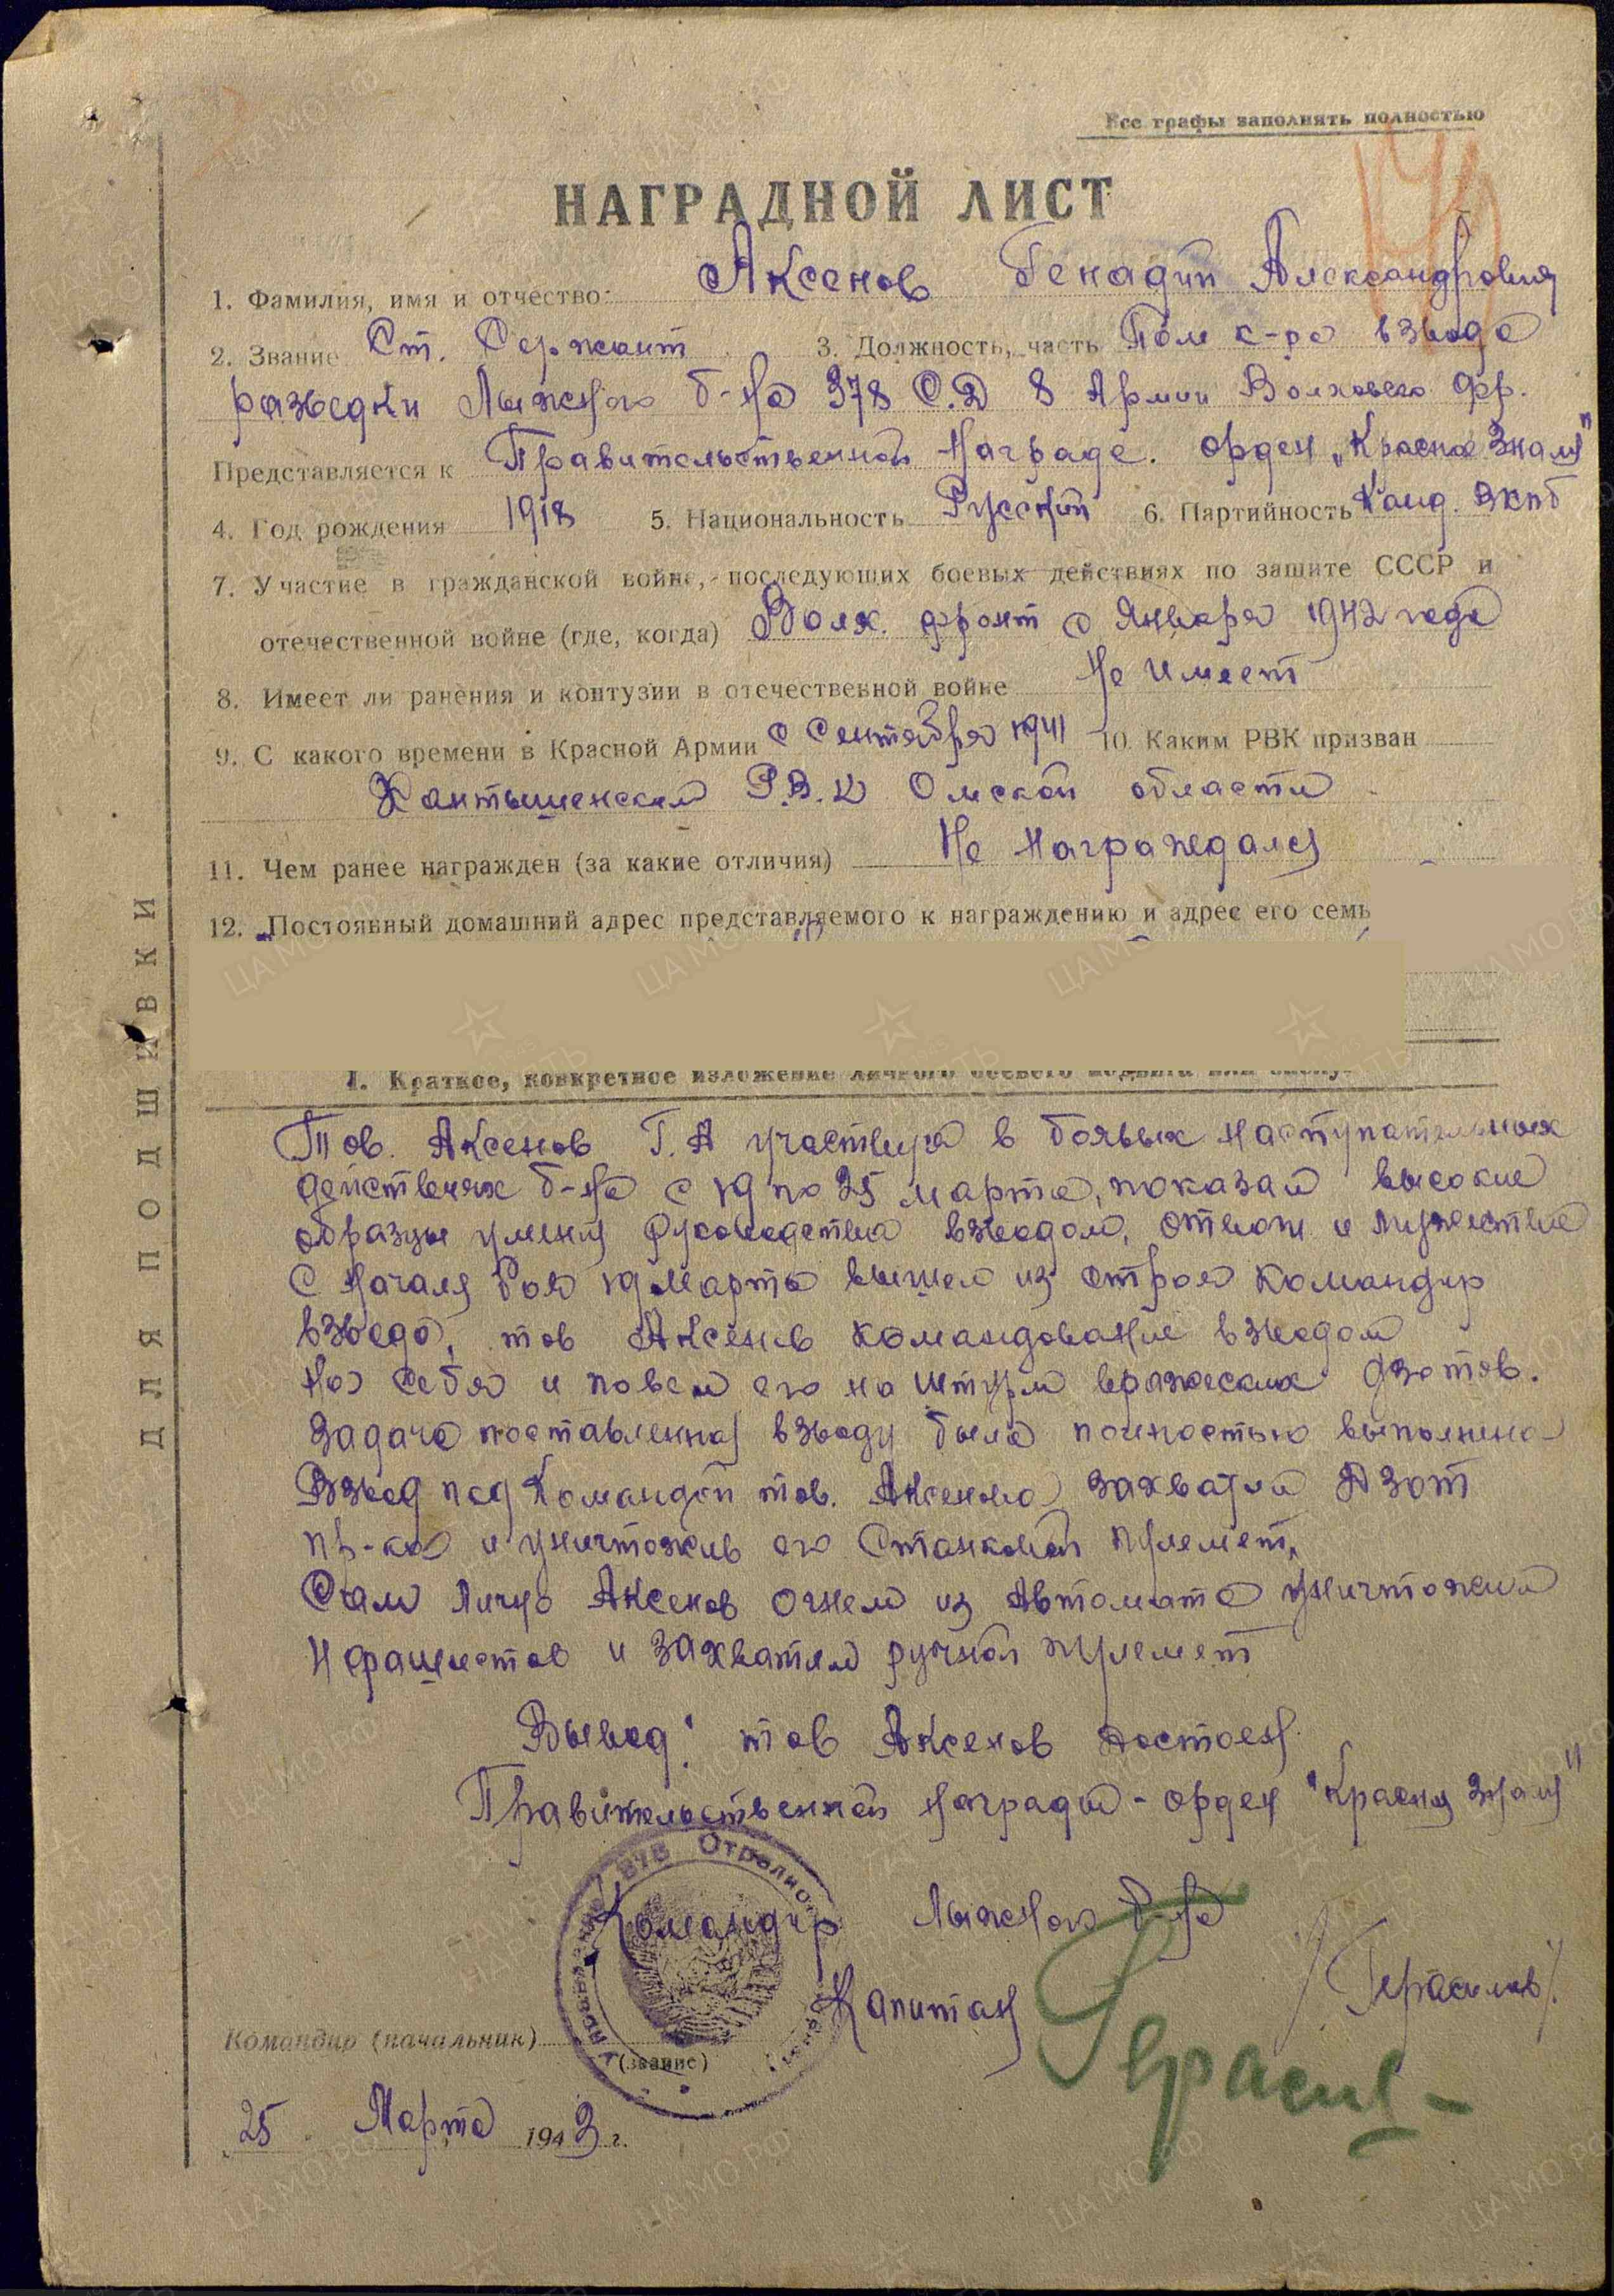 Все графы заполнять полностью
НАГРАДНОЙ ЛИСТ
1. Фамилия, имя и отчество: Аксенов Генадий Александрович
2. Звание Ст. Сержант 3. Должность, часть Пом к-ра взвода
разведки Лыжного б-на 378 С.Д 8 Армии Волховского фр.
Представляется к Правительственной Награде. орден „Красное Знамя"
4. Год рождения 1918 5. Национальность Русский 6. Партийность Канд. ВКПб
7. Участие в гражданской войне, последующих боевых действиях по защите СССР и
отечественной войне (где, когда) Волх. фронт с Января 1942 года
8. Имеет ли ранения и контузии в отечественной войне Не Имеет
9. С какого времени в Красной Армии с Сентября 1941 10. Каким РВК призван
Р.В.К Омской области
11. Чем ранее награжден (за какие отличия) Не Награждался
12. Постоянный домашний адрес представляемого к награждению и адрес его семь
I. Краткое, конкретное изложение личного боевого подвига или заслу
Тов. Аксенов Г.А участвуя в боявых наступательных
действиях б-на с 19 по 25 марта, показал высокие
образцы умения руководства взводом, отваги и мужества
С начала боя 19 Марта вышел из строя Командир
взвода, тов Аксенов командование взводом
на себя и повел его на штурм вражеских дзотов.
Задача поставленная взводу была полностью выполнена
Взвод под Командой тов. Аксенова захватил Дзот
пр-ка и уничтожив его Станковый пулемет,
Сам Лично Аксенов огнем из Автомата уничтожил
4 фашистов и захватил ручной пулемет
Вывод: тов Аксенов достоен
Правительственной награды - орден "Красня Знамя"
Командир Лыжного б-на
Капитан /Герасимов/.
Командир (начальник)
(звание)
25 Марта 1943 г.
ДЛЯ ПОДШИВКИ
378 Отдельно
ЦАМО РФ